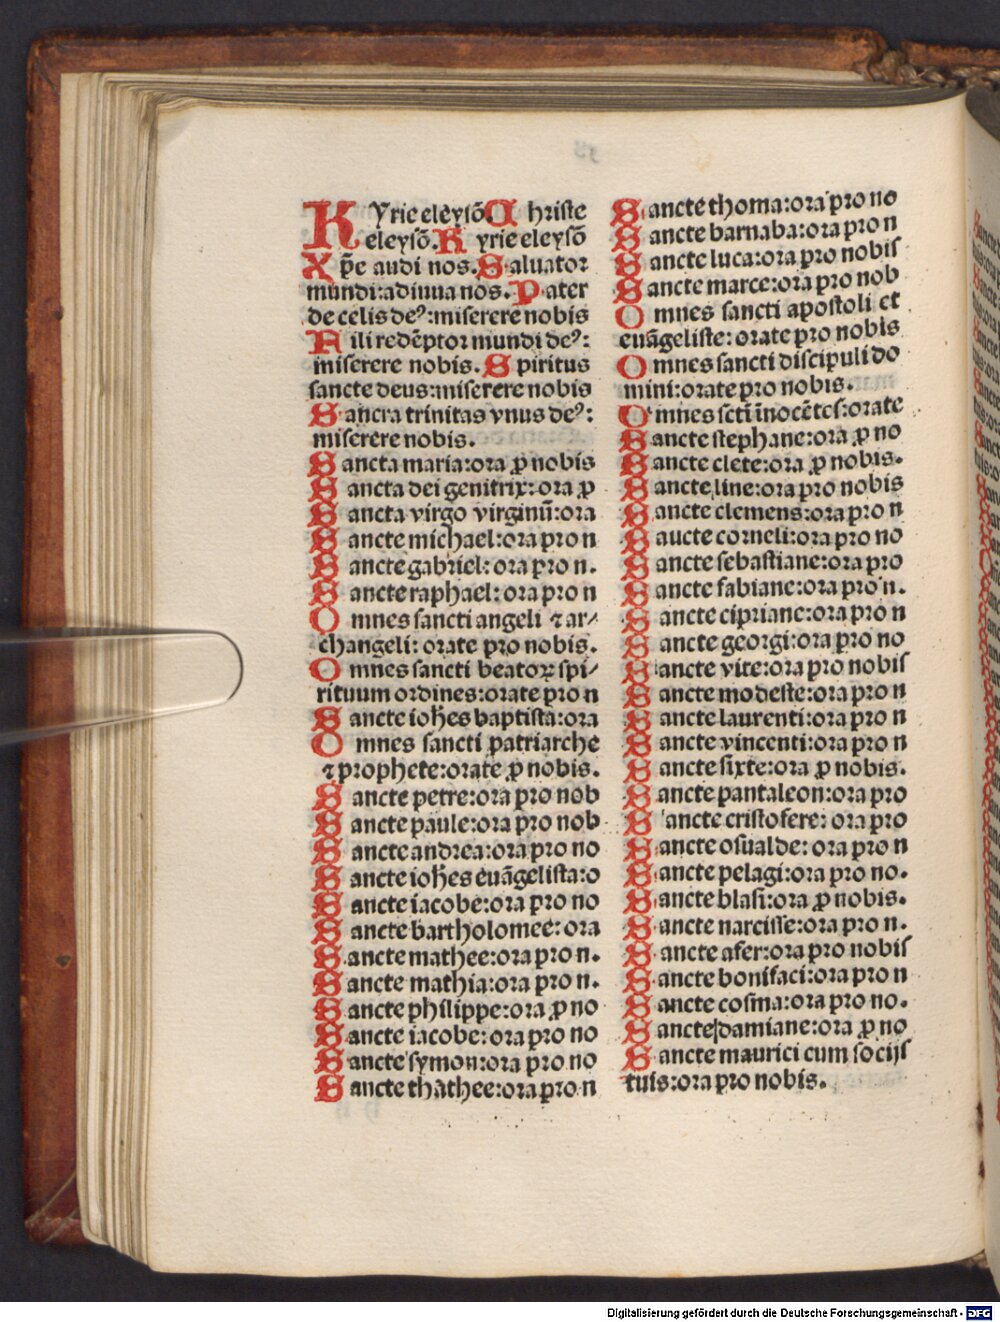 KYrie eleysō. Christe
eleysō. Kyrie eleysō
Xp̄e audi nos. Saluator
mundi: adiuua nos. Pater
de celis deꝰ: miserere nobis
Fili redēptor mundi deꝰ:
miserere nobis. Spiritus
sancte deus: miserere nobis
Sancta trinitas vnus deꝰ:
miserere nobis.
Sancta maria: ora ꝓ nobis
Sancta dei genitrix: ora ꝓ
Sancta virgo virginū: ora
Sancte michael: ora pro n
Sancte gabriel: ora pro n.
Sancte raphael: ora pro n
Omnes sancti angeli ⁊ ar⸗
changeli: orate pro nobis.
Omnes sancti beatoꝝ spi⸗
rituum ordines: orate pro n
Sancte ioh̄es baptista: ora
Omnes sancti patriarche
⁊ prophete: orate ꝓ nobis.
Sancte petre: ora pro nob
Sancte paule: ora pro nob
Sancte andrea: ora pro no
Sancte ioh̄es euāgelista: o
Sancte iacobe: ora pro no
Sancte bartholomee: ora
Sancte mathee: ora pro n.
Sancte mathia: ora pro n.
Sancte philippe: ora ꝓ no
Sancte iacobe: ora pro no
Sancte symon: ora pro no
Sancte thathee: ora pro n
Sancte thoma: ora pro no
Sancte barnaba: ora pro n
Sancte luca: ora pro nobis
Sancte marce: ora pro nob
Omnes sancti apostoli et
euāgeliste: orate pro nobis
Omnes sancti discipuli do
mini: orate pro nobis.
Omnes sctī īnocētes: orate
Sancte stephane: ora ꝓ no
Sancte clete: ora ꝓ nobis.
Sancte line: ora pro nobis
Sancte clemens: ora pro n
Saucte corneli: ora pro no
Sancte sebastiane: ora pro
Sancte fabiane: ora pro n.
Sancte cipriane: ora pro n
Sancte georgi: ora pro no
Sancte vite: ora pro nobis
Sancte modeste: ora pro n
Sancte laurenti: ora pro n
Sancte vincenti: ora pro n
Sancte sixte: ora ꝓ nobis.
Sancte pantaleon: ora pro
Sancte cristofere: ora pro
Sancte osualde: ora pro n
Sancte pelagi: ora pro no.
Sancte blasi: ora ꝓ nobis.
Sancte narcisse: ora pro n.
Sancte afer: ora pro nobis
Sancte bonifaci: ora pro n
Sancte cosma: ora pro no.
Sancte damiane: ora ꝓ no
Sancte maurici cum socijs
tuis: ora pro nobis.
Digitalisierung gefördert durch die Deutsche Forschungsgemeinschaft - DFG